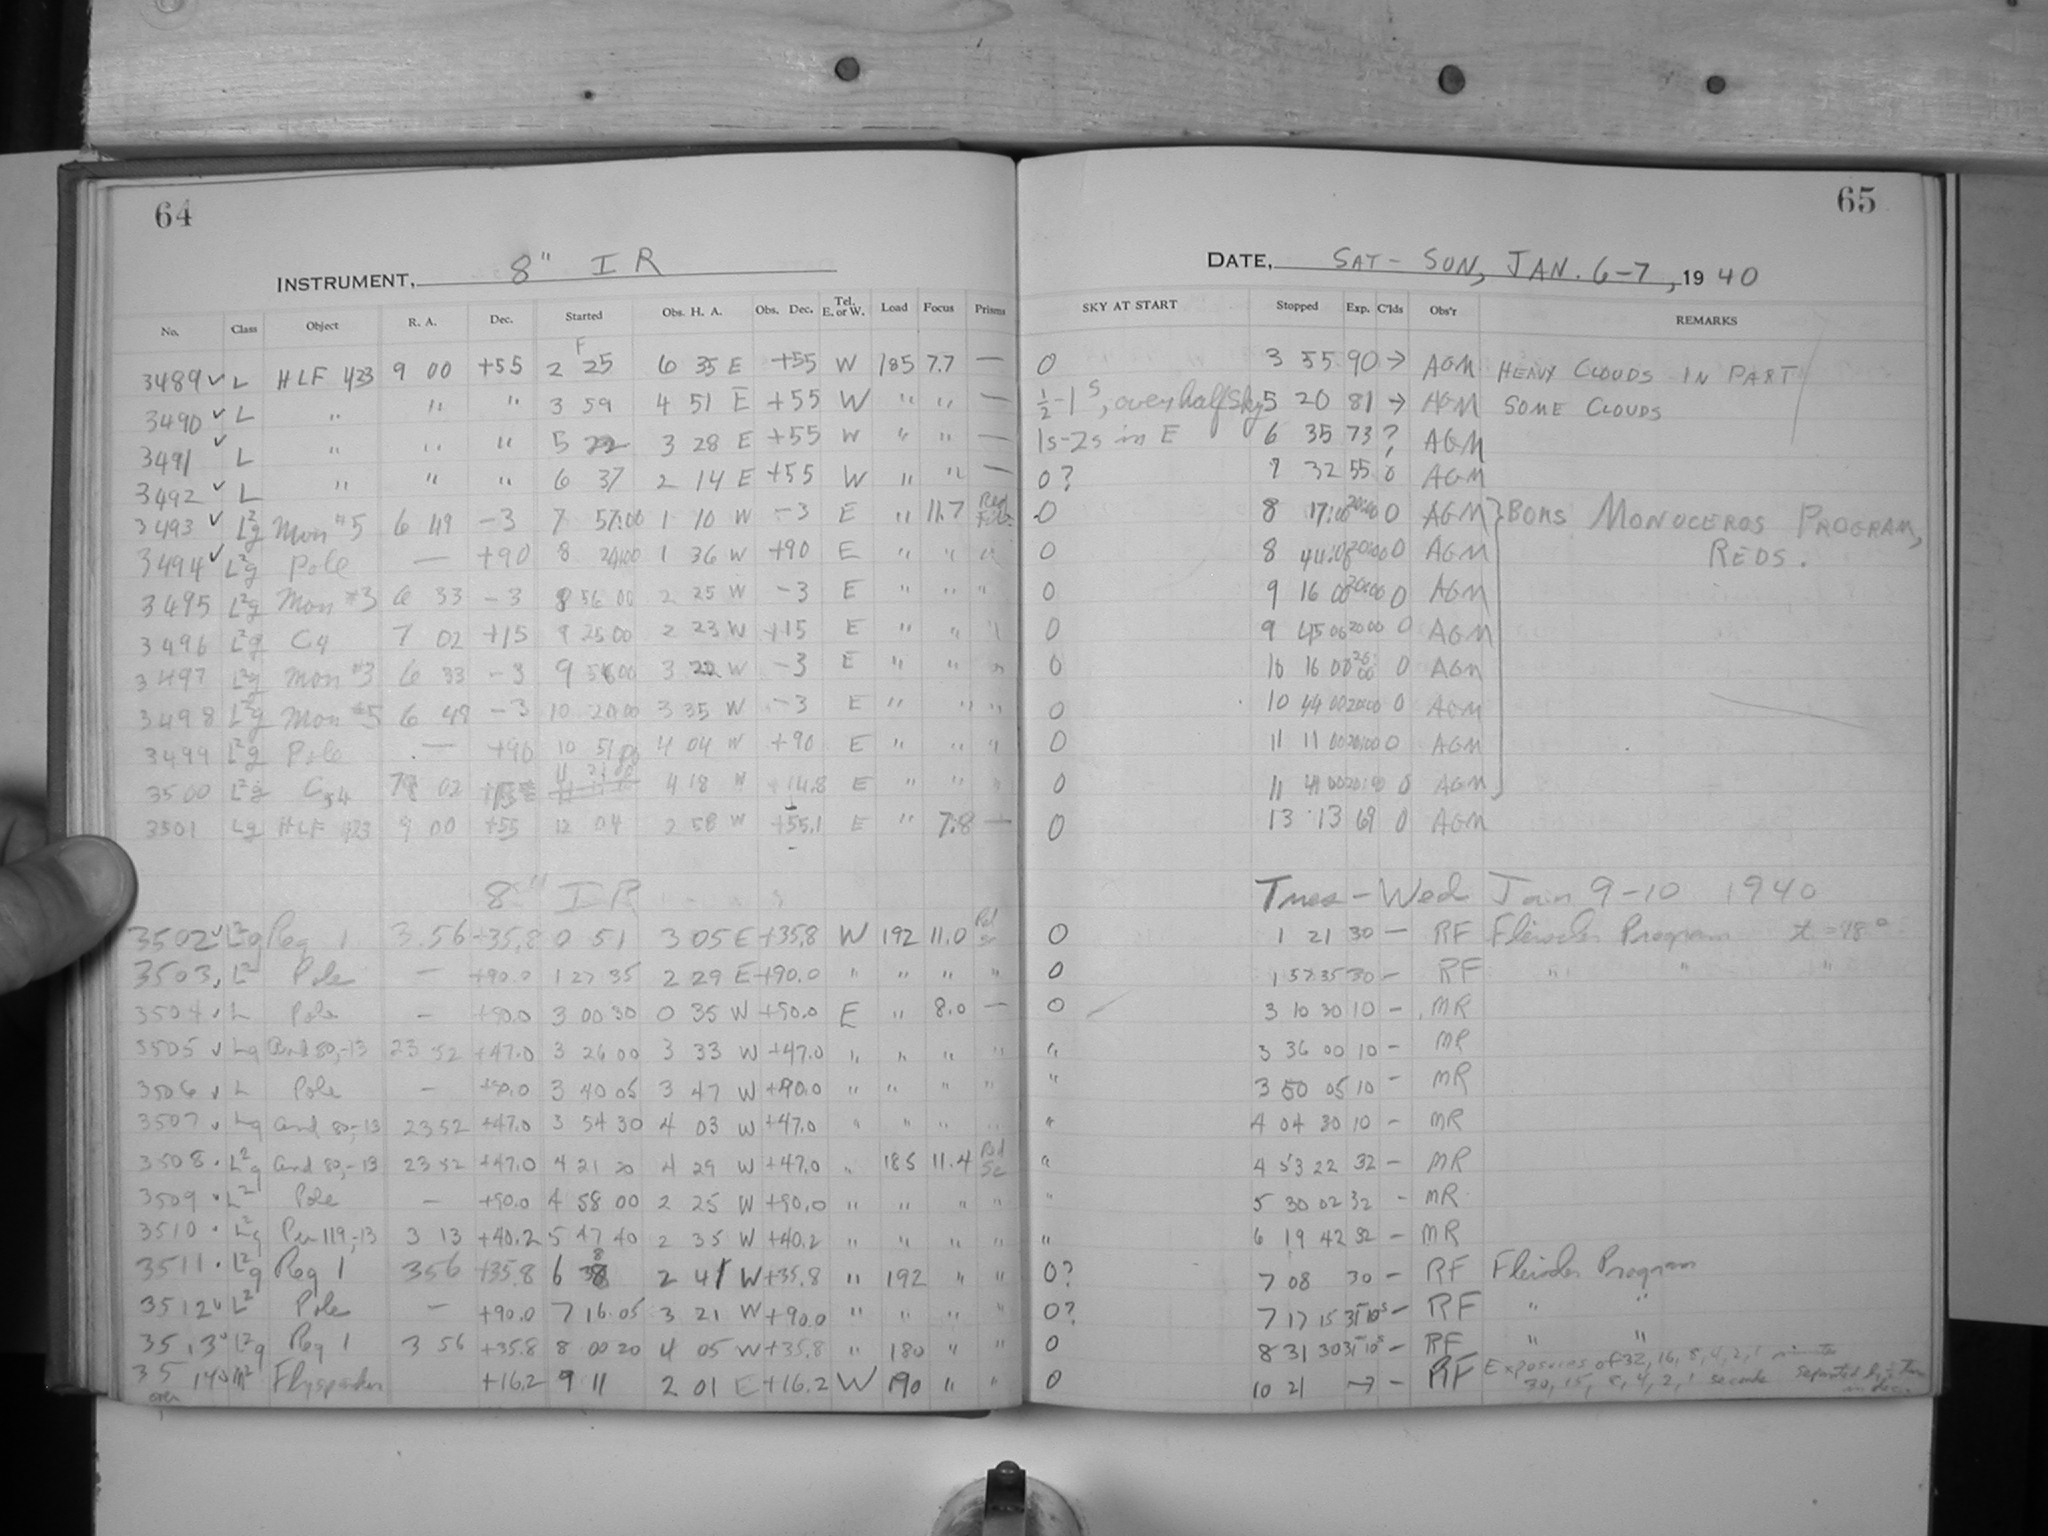 64
INSTRUMENT, 8" I R
No. Class Object R. A. Dec. Started Obs. H. A. Obs. Dec. Tel. E. or W. Load Focus Prisms
3489 ✓ L HLF 423 9 00 +55 2 25 6 35 E +55 W 185 7.7 —
3490 ✓ L " " " 3 59 4 51 E +55 W " " —
3491 ✓ L " " " 5 22 3 28 E +55 W " " —
3492 ✓ L " " " 6 37 2 14 E +55 W " " —
3493 ✓ L²g Mon #5 6 49 -3 7 57:00 1 10 W -3 E " 11.7 Red
3494 ✓ L²g Pole — +90 8 24:00 1 36 W +90 E " " "
3495 L²g Mon #3 6 33 -3 8 56 00 2 25 W -3 E " " "
3496 L²g C4 7 02 +15 9 25 00 2 23 W +15 E " " "
3497 L²g Mon #3 6 33 -3 9 56 00 3 22 W -3 E " " "
3498 L²g Mon #5 6 49 -3 10 24 00 3 35 W -3 E " " "
3499 L²g Pole — +90 10 51 00 4 04 W +90 E " " "
3500 L²g 02 4 18 W +14.8 E " " "
3501 Lg HLF 423 9 00 +55 12 04 2 58 W +55.1 E " 7.8 —
8" I R
3502 ✓ L²g Reg 1 3 56 +35.8 0 51 3 05 E +35.8 W 192 11.0
3503 L² Pole — +90.0 1 27 35 2 29 E +90.0 " " " "
3504 L Pole — +90.0 3 00 30 0 35 W +90.0 E " 8.0 —
3505 ✓ Lg And 80,-13 23 52 +47.0 3 26 00 3 33 W +47.0 " " " "
3506 ✓ L Pole — +90.0 3 40 05 3 47 W +90.0 " " " "
3507 ✓ Lg And 80,-13 23 52 +47.0 3 54 30 4 03 W +47.0 " " " "
3508 L²g And 80,-13 23 52 +47.0 4 21 20 4 29 W +47.0 " 185 11.4
3509 L² Pole — +90.0 4 58 00 2 25 W +90.0 " " " "
3510 L²g Per 119,-13 3 13 +40.2 5 47 40 2 35 W +40.2 " " " "
3511 L²g Reg 1 3 56 +35.8 6 38 2 41 W +35.8 " 192 " "
3512 L² Pole — +90.0 7 16 05 3 21 W +90.0 " " " "
3513 L²g Reg 1 3 56 +35.8 8 00 20 4 05 W +35.8 " 180 " "
3514 +16.2 9 11 2 01 E +16.2 W 190 " "
over
65
DATE, SAT - SUN, JAN. 6-7, 1940
SKY AT START Stopped Exp. C'lds Obs'r REMARKS
0 3 55 90 → AGM HEAVY CLOUDS IN PART
½-1 s, over half sky 5 20 81 → AGM SOME CLOUDS
1s-2s in E 6 35 73 ? AGM
0? 7 32 55 0 AGM
0 8 17:00 20:00 0 AGM } BOKS MONOCEROS PROGRAM,
0 8 44:00 20:00 0 AGM REDS.
0 9 16 00 20:00 0 AGM
0 9 45 00 20 00 0 AGM
0 10 16 00 20:00 0 AGM
0 10 44 00 20:00 0 AGM
0 11 11 00 20:00 0 AGM
0 11 41 00 20:00 0 AGM
0 13 13 69 0 AGM
Tues - Wed Jan 9-10 1940
0 1 21 30 — RF Program t = 18°
0 1 57 35 30 - RF " " "
0 3 10 30 10 - MR
" 3 36 00 10 - MR
" 3 50 05 10 - MR
" 4 04 30 10 - MR
" 4 53 22 32 - MR
" 5 30 02 32 - MR
" 6 19 42 32 - MR
0? 7 08 30 - RF Program
0? 7 17 15 - RF " "
0 8 31 30 - RF " "
0 10 21 → - RF Exposures of 32, 16, 8, 4, 2, 1 minutes
30, 15, 8, 4, 2, 1 seconds separated by
in dec.